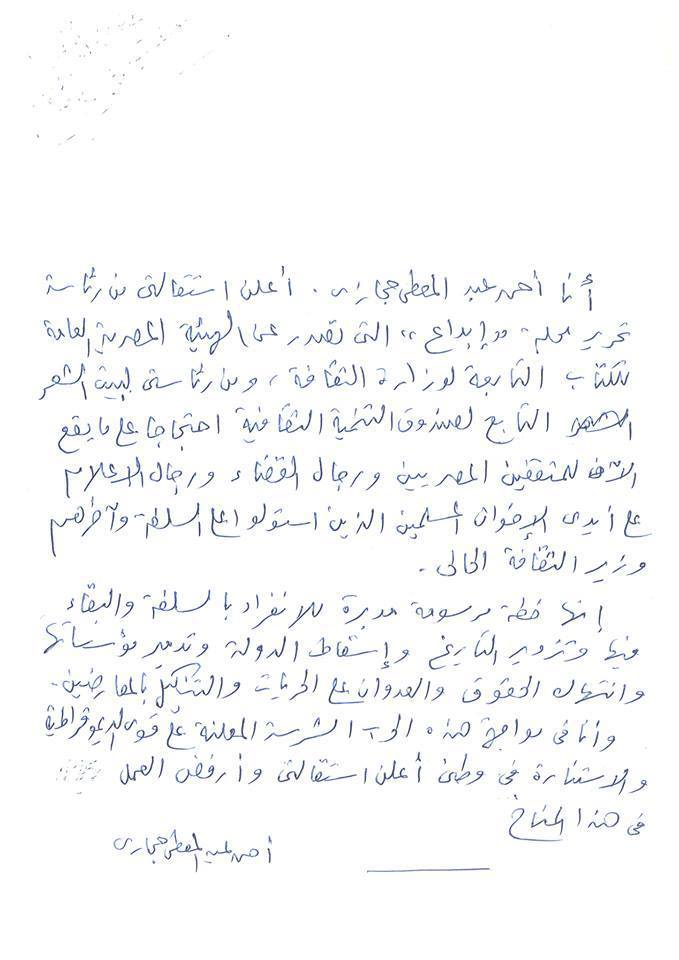 أنا أحمد عبد المعطي حجازى . أعلن استقالتى من رئاسة
تحرير مجلة "إبداع" التى تصدر عن الهيئة المصرية العامة
للكتاب التابعة لوزارة الثقافة، ومن رئاستى لبيت الشعر
التابع لصندوق التنمية الثقافية احتجاجا على ما يقع
الآن للمثقفين المصريين ورجال القضاء ورجال الاعلام
على أيدى الإخوان المسلمين الذين استولوا على السلطة وآخرهم
وزير الثقافة الحالى .
إنها خطة مرسومة مدبرة للانفراد بالسلطة والبقاء
فيها وتزوير التاريخ وإسقاط الدولة وتدمير مؤسساتها
وانتهاك الحقوق والعدوان على الحريات والتنكيل بالمعارضين .
وأنا فى مواجهة هذه الحرب الشرسة المعلنة على قوى الديموقراطية
والاستنارة فى وطنى أعلن استقالتى وأرفض العمل
فى هذا المناخ
أحمد عبد المعطى حجازى